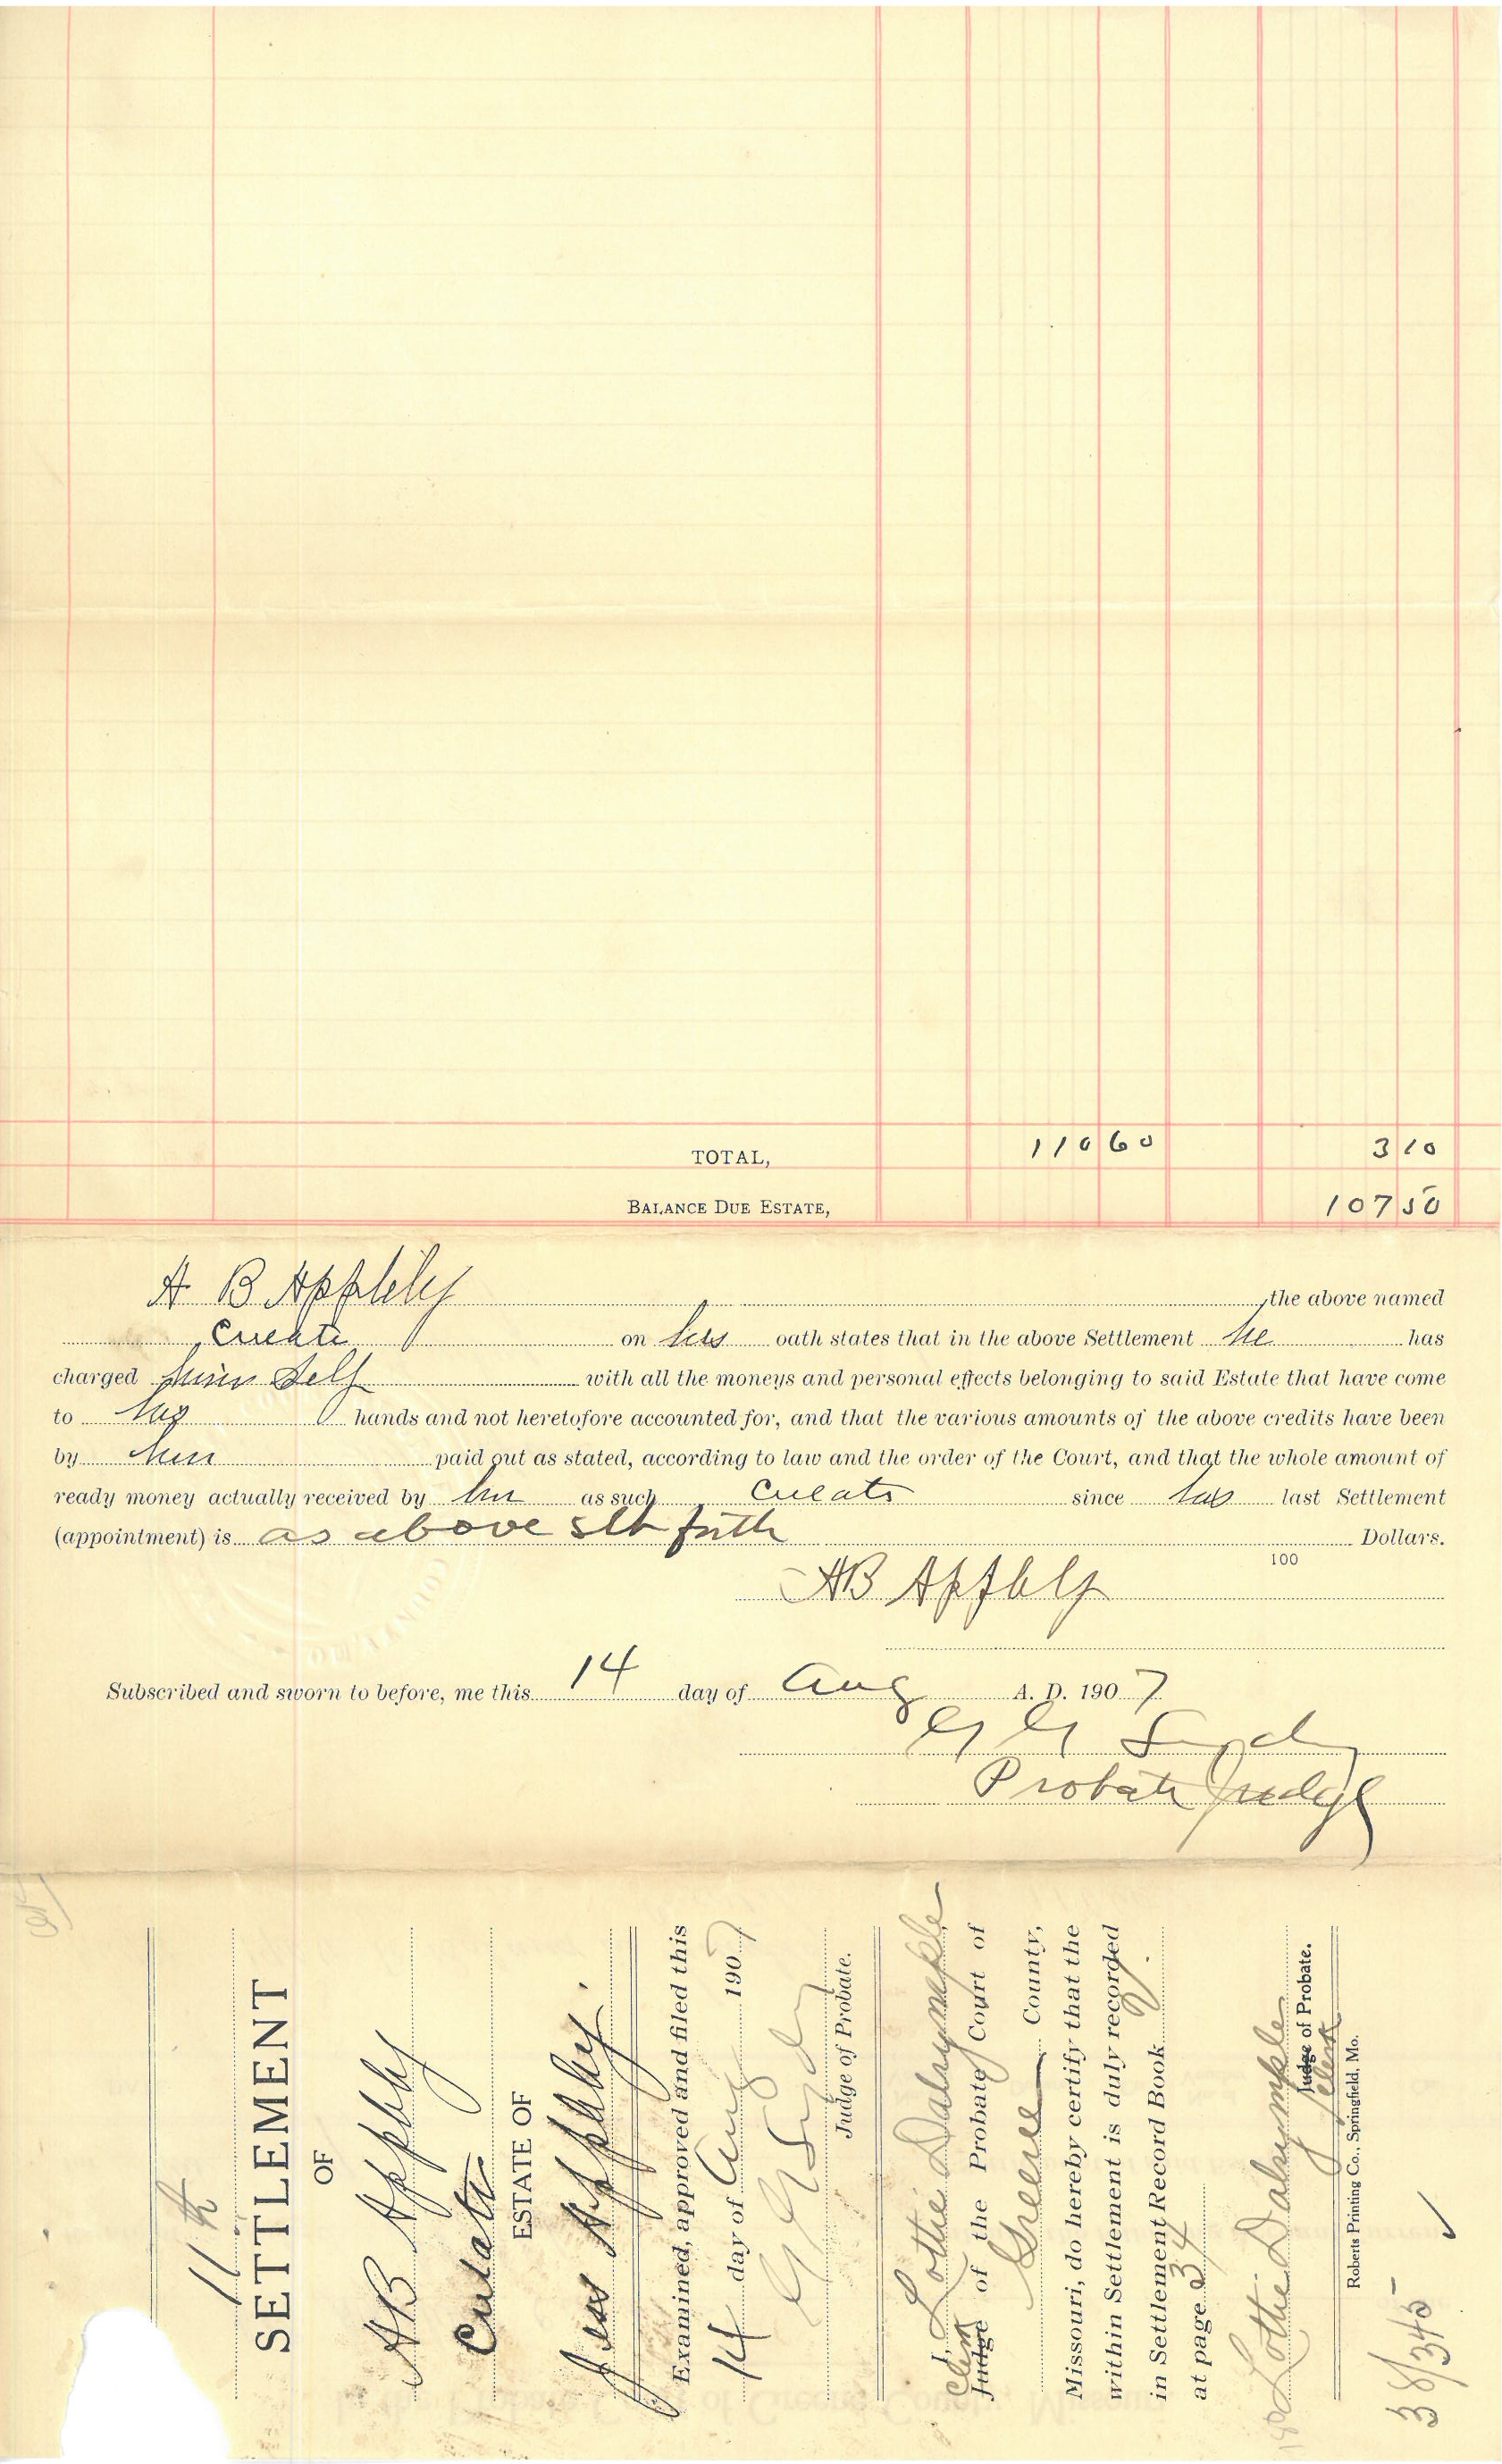 TOTAL, 110 60 3 10
BALANCE DUE ESTATE, 107 50
A B Appleby the above named
Curato on his oath states that in the above Settlement he has
charged him self with all the moneys and personal effects belonging to said Estate that have come
to his hands and not heretofore accounted for, and that the various amounts of the above credits have been
by him paid out as stated, according to law and the order of the Court, and that the whole amount of
ready money actually received by him as such Curato since his last Settlement
(appointment) is as above set forth Dollars.
100
AB Appleby
COUNTY, MO.
Subscribed and sworn to before, me this 14 day of Aug A. D. 190 7
Probate Judge
11 th
SETTLEMENT
OF
AB Appleby
Curato
ESTATE OF
Jess Appleby.
Examined, approved and filed this
14 day of Aug 190 7
Judge of Probate.
I, Lottie Dalrymple
Clerk
Judge of the Probate Court of
Greene County,
Missouri, do hereby certify that the
within Settlement is duly recorded
in Settlement Record Book
at page 34
Lottie Dalrymple
Judge of Probate.
Clerk
Roberts Printing Co., Springfield, Mo.
38/345